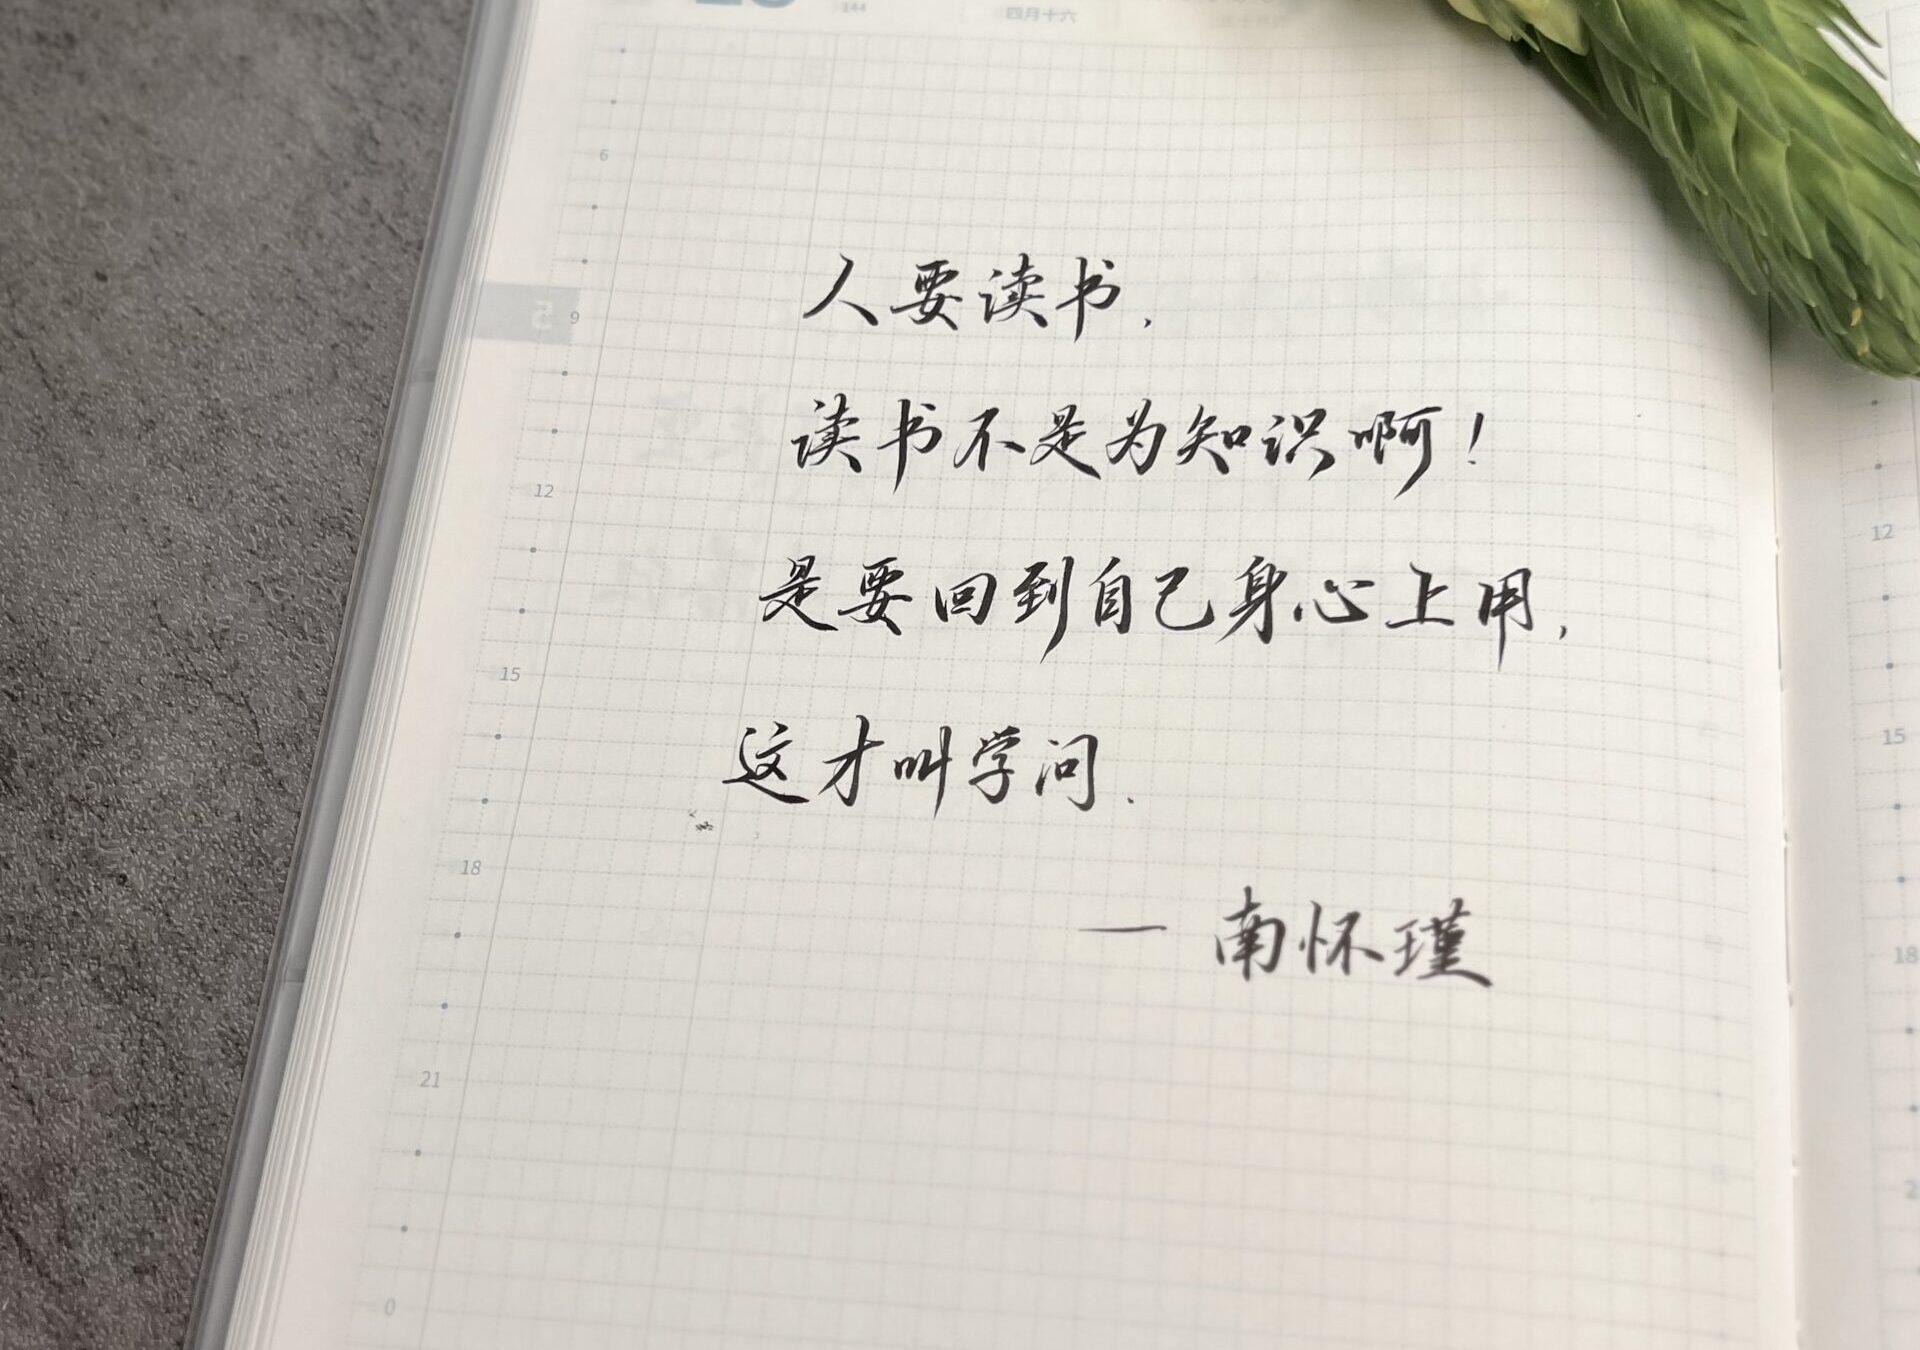 144 四月十六
6
人要读书,
5 9
读书不是为知识啊!
12
12
是要回到自己身心上用,
15
15
这才叫学问.
18
18
— 南怀瑾
21
0